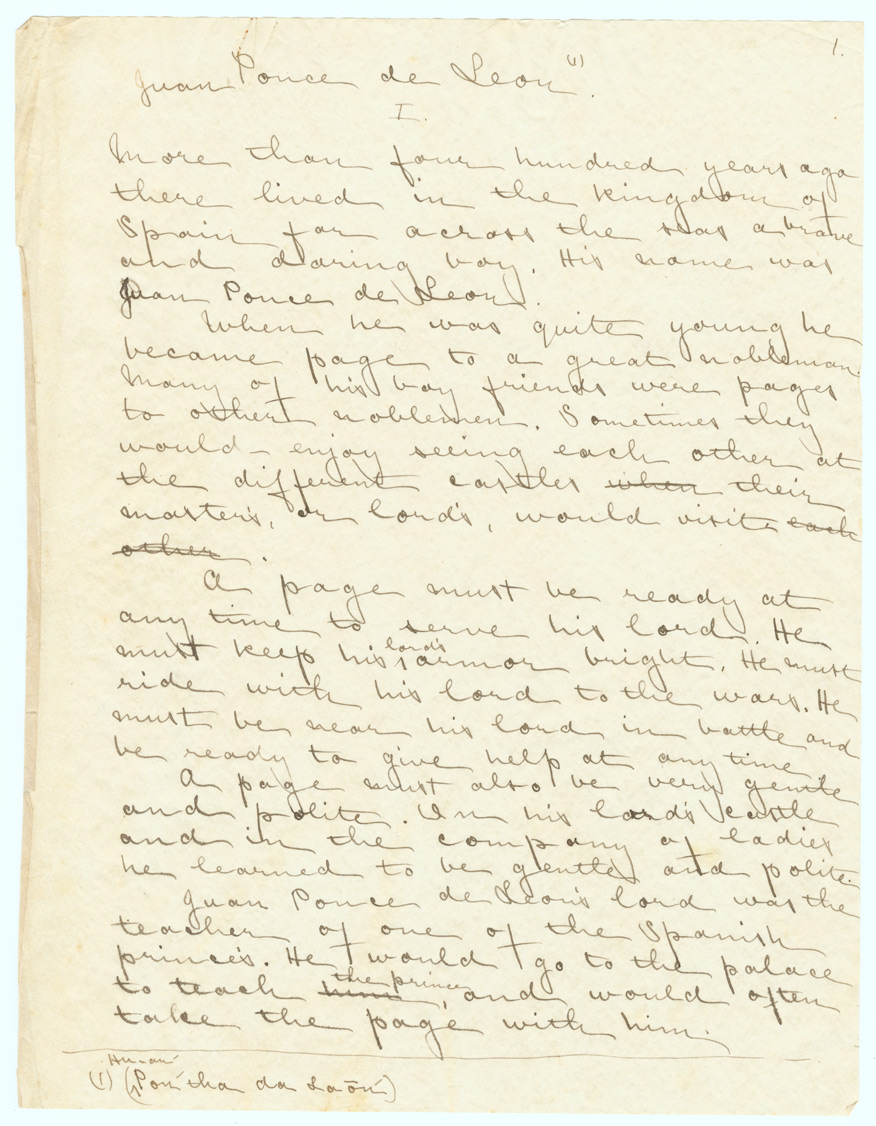 1.
Juan Ponce de Leon (1).
I.
More than four hundred years ago
there lived in the kingdom of
Spain far across the seas a brave
and daring boy. His name was
Juan Ponce de Leon.
When he was quite young he
became page to a great nobleman.
Many of his boy friends were pages
to other noblemen. Sometimes they
would enjoy seeing each other at
the different castles when their
master's, or lord's, would visit each
other.
A page must be ready at
any time to serve his lord. He
must keep his lord's armor bright. He must
ride with his lord to the wars. He
must be near his lord in battle and
be ready to give help at any time.
A page must also be very gentle
and polite. In his lord's castle
and in the company of ladies
he learned to be gentle and polite.
Juan Ponce de Leon's lord was the
teacher of one of the Spanish
prince's. He would go to the palace
to teach him the prince, and would often
take the page with him.
(1) (Pon'tha da La ōn')